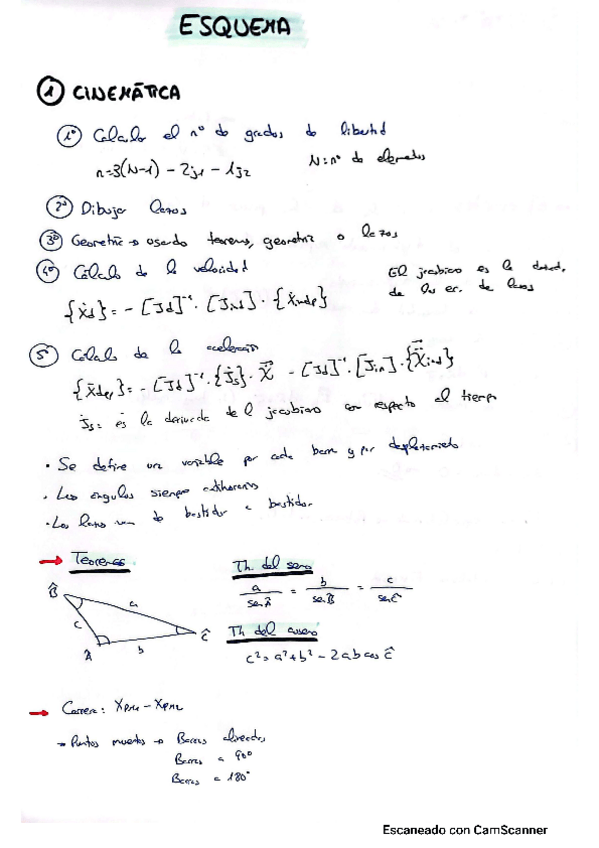 ESQUEMA
① CINEMÁTICA
1º Calculo el nº de grados de libertad
n=3(N-1) - 2j1 - 1j2 N: nº de elementos
2º Dibujo lazos
3º Geometría → usando teorema, geometría o lazos
4º Cálculo de la velocidad
El jacobiano es la
de las ec. de lazos
{ẋd} = - [Jd]⁻¹ · [Jind] · {ẋindep}
5º Cálculo de la aceleración
{ẍdep} = - [Jd]⁻¹ · {J̇s} · Ẋ - [Jd]⁻¹ · [Jin] · {Ẍind}
J̇s = es la derivada del jacobiano con respecto al tiempo
• Se define una variable por cada barra y por desplazamiento
• Los ángulos siempre antihorarios
• Los lazos van de bastidor a bastidor
→ Teoremas
Th del seno
a/senÂ = b/senB̂ = c/senĈ
B̂ a
c Ĉ
Â b
Th del coseno
c² = a² + b² - 2ab cos Ĉ
→ Carrera: XPM1 - XPM2
→ Puntos muertos → Barras alineadas
Barras a 90º
Barras a 180º
Escaneado con CamScanner